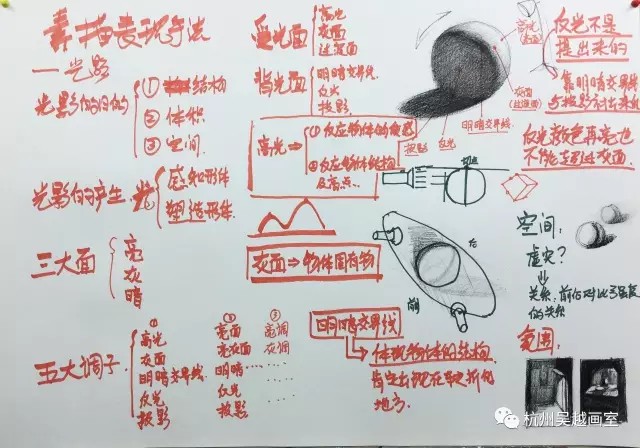 素描表现手法
一光影
光影的目的
①结构
②体积
③空间.
光影的产生.光
感知形体
塑造形体.
三大面
亮
灰
暗
五大调子
①
高光
灰面
明暗交界线.
反光
投影
②
亮面
亮灰面
明暗
反光
投影
③
亮调
灰调
受光面
高光
灰面
过渡面
背光面
明暗交界线.
反光
投影.
高光⇒
①反应物体的质感
②反应物体结构
及高点.
灰面⇒物体固有物
明暗交界线
体现物体的结构.
肯定出现在转折的
地方.
高光
灰面
(过渡面)
明暗交界线.
反光
投影
反光不是
提出来的
靠明暗交界线
与投影衬出来的
反光颜色再亮也
不能超过灰面
后
前
空间:
虚实?
关系,前后对比强度
的关系
氛围:
杭州吴越画室